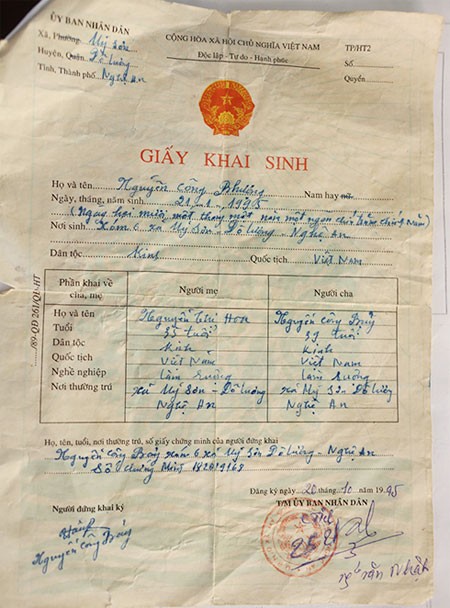 ỦY BAN NHÂN DÂN
Xã, Phường: Mỹ Sơn
Huyện, Quận: Đô Lương
Tỉnh, Thành phố: Nghệ An
CỘNG HÒA XÃ HỘI CHỦ NGHĨA VIỆT NAM
Độc lập - Tự do - Hạnh phúc
TP/HT2
Số
Quyển
GIẤY KHAI SINH
Họ và tên Nguyễn Công Phượng Nam hay nữ
Ngày, tháng, năm sinh 21-1-1995
(Ngày hai mươi một tháng một năm một ngàn chín trăm chín năm)
Nơi sinh Xóm 6 xã Mỹ Sơn - Đô Lương - Nghệ An
Dân tộc Kinh Quốc tịch Việt Nam
Phần khai về cha, mẹ Người mẹ Người cha
Họ và tên Nguyễn Thị Hoa Nguyễn Công Bảy
Tuổi 35 tuổi 37 tuổi
Dân tộc Kinh Kinh
Quốc tịch Việt Nam Việt Nam
Nghề nghiệp Làm ruộng Làm ruộng
Nơi thường trú xã Mỹ Sơn - Đô Lương xã Mỹ Sơn Đô Lương
Nghệ An Nghệ An
/89-QĐ 261/QL-HT
Họ, tên, tuổi, nơi thường trú, số giấy chứng minh của người đứng khai
Nguyễn Công Bảy xóm 6 xã Mỹ Sơn Đô Lương - Nghệ An
Số chứng minh
Đăng ký ngày 20 tháng 10 năm 1995
Người đứng khai ký
T/M ỦY BAN NHÂN DÂN
Nguyễn Công Bảy